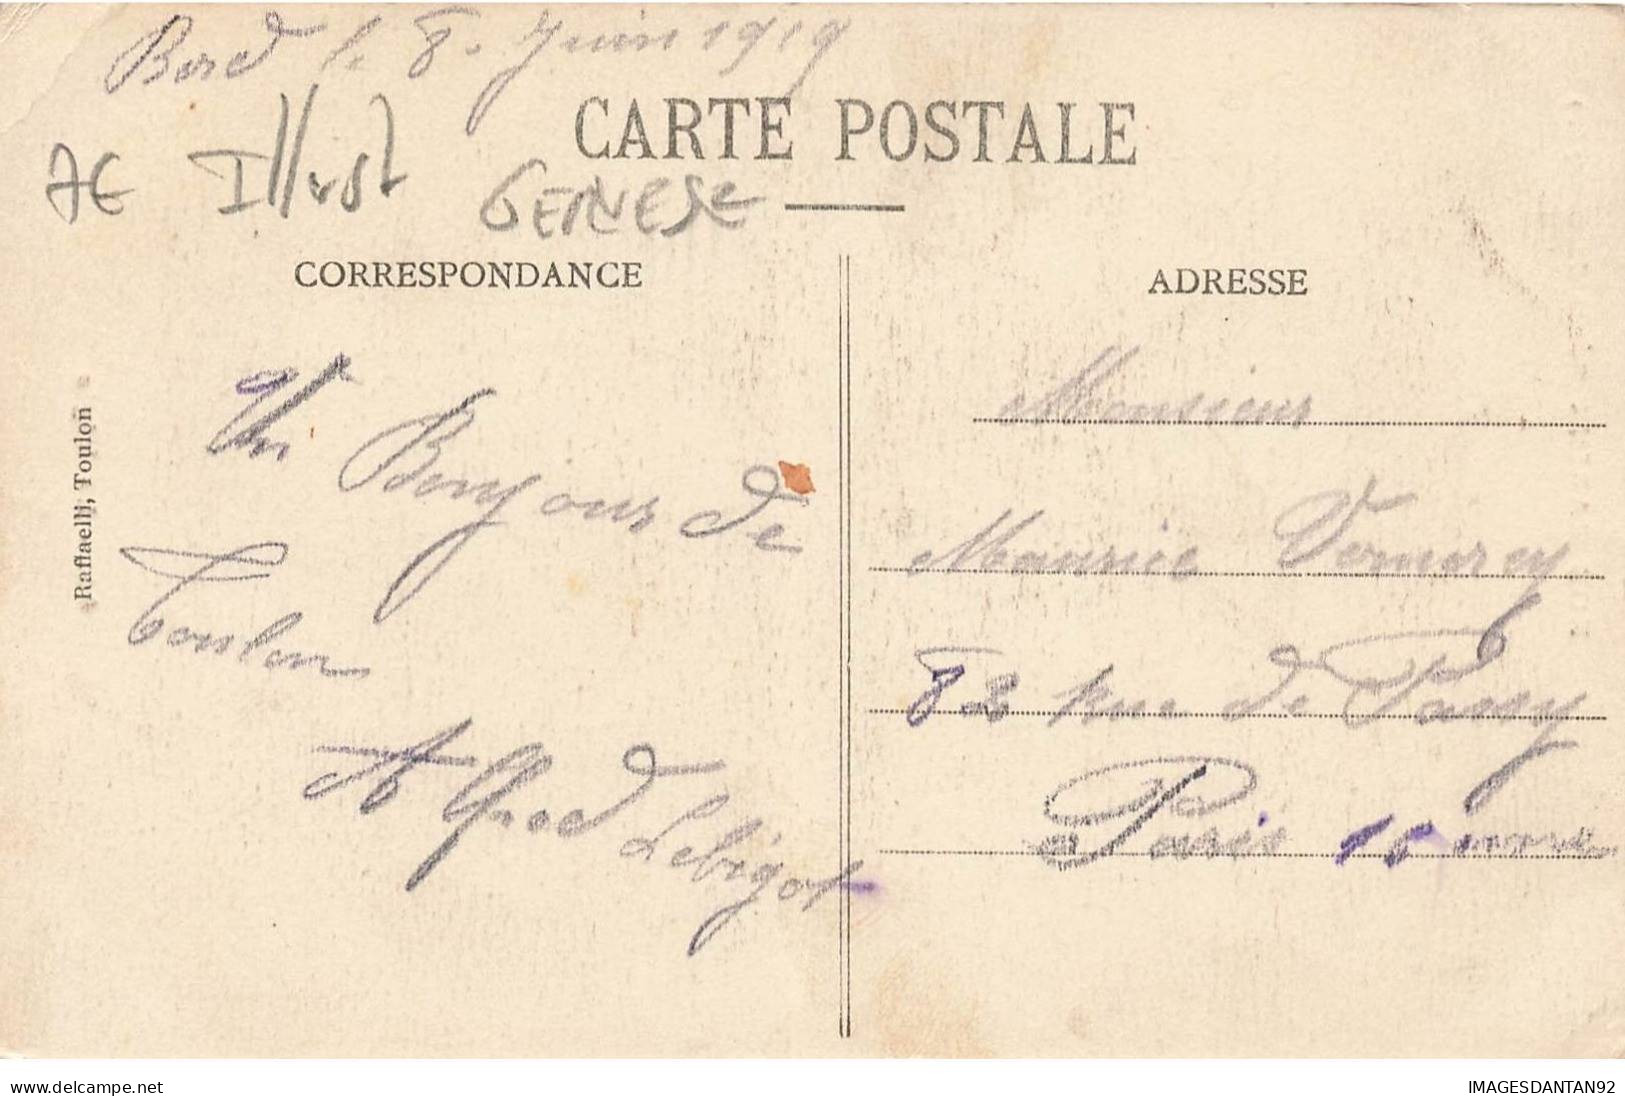 Bord le 8. Juin 1919
CARTE POSTALE
7€ Illust GERVESE
CORRESPONDANCE
ADRESSE
Raffaelli, Toulon
Un Bonjour de
Toulon
Alfred Lebigot
Monsieur
Maurice
82 Rue de Passy
Paris 16
delcampe.net
IMAGESDANTAN92